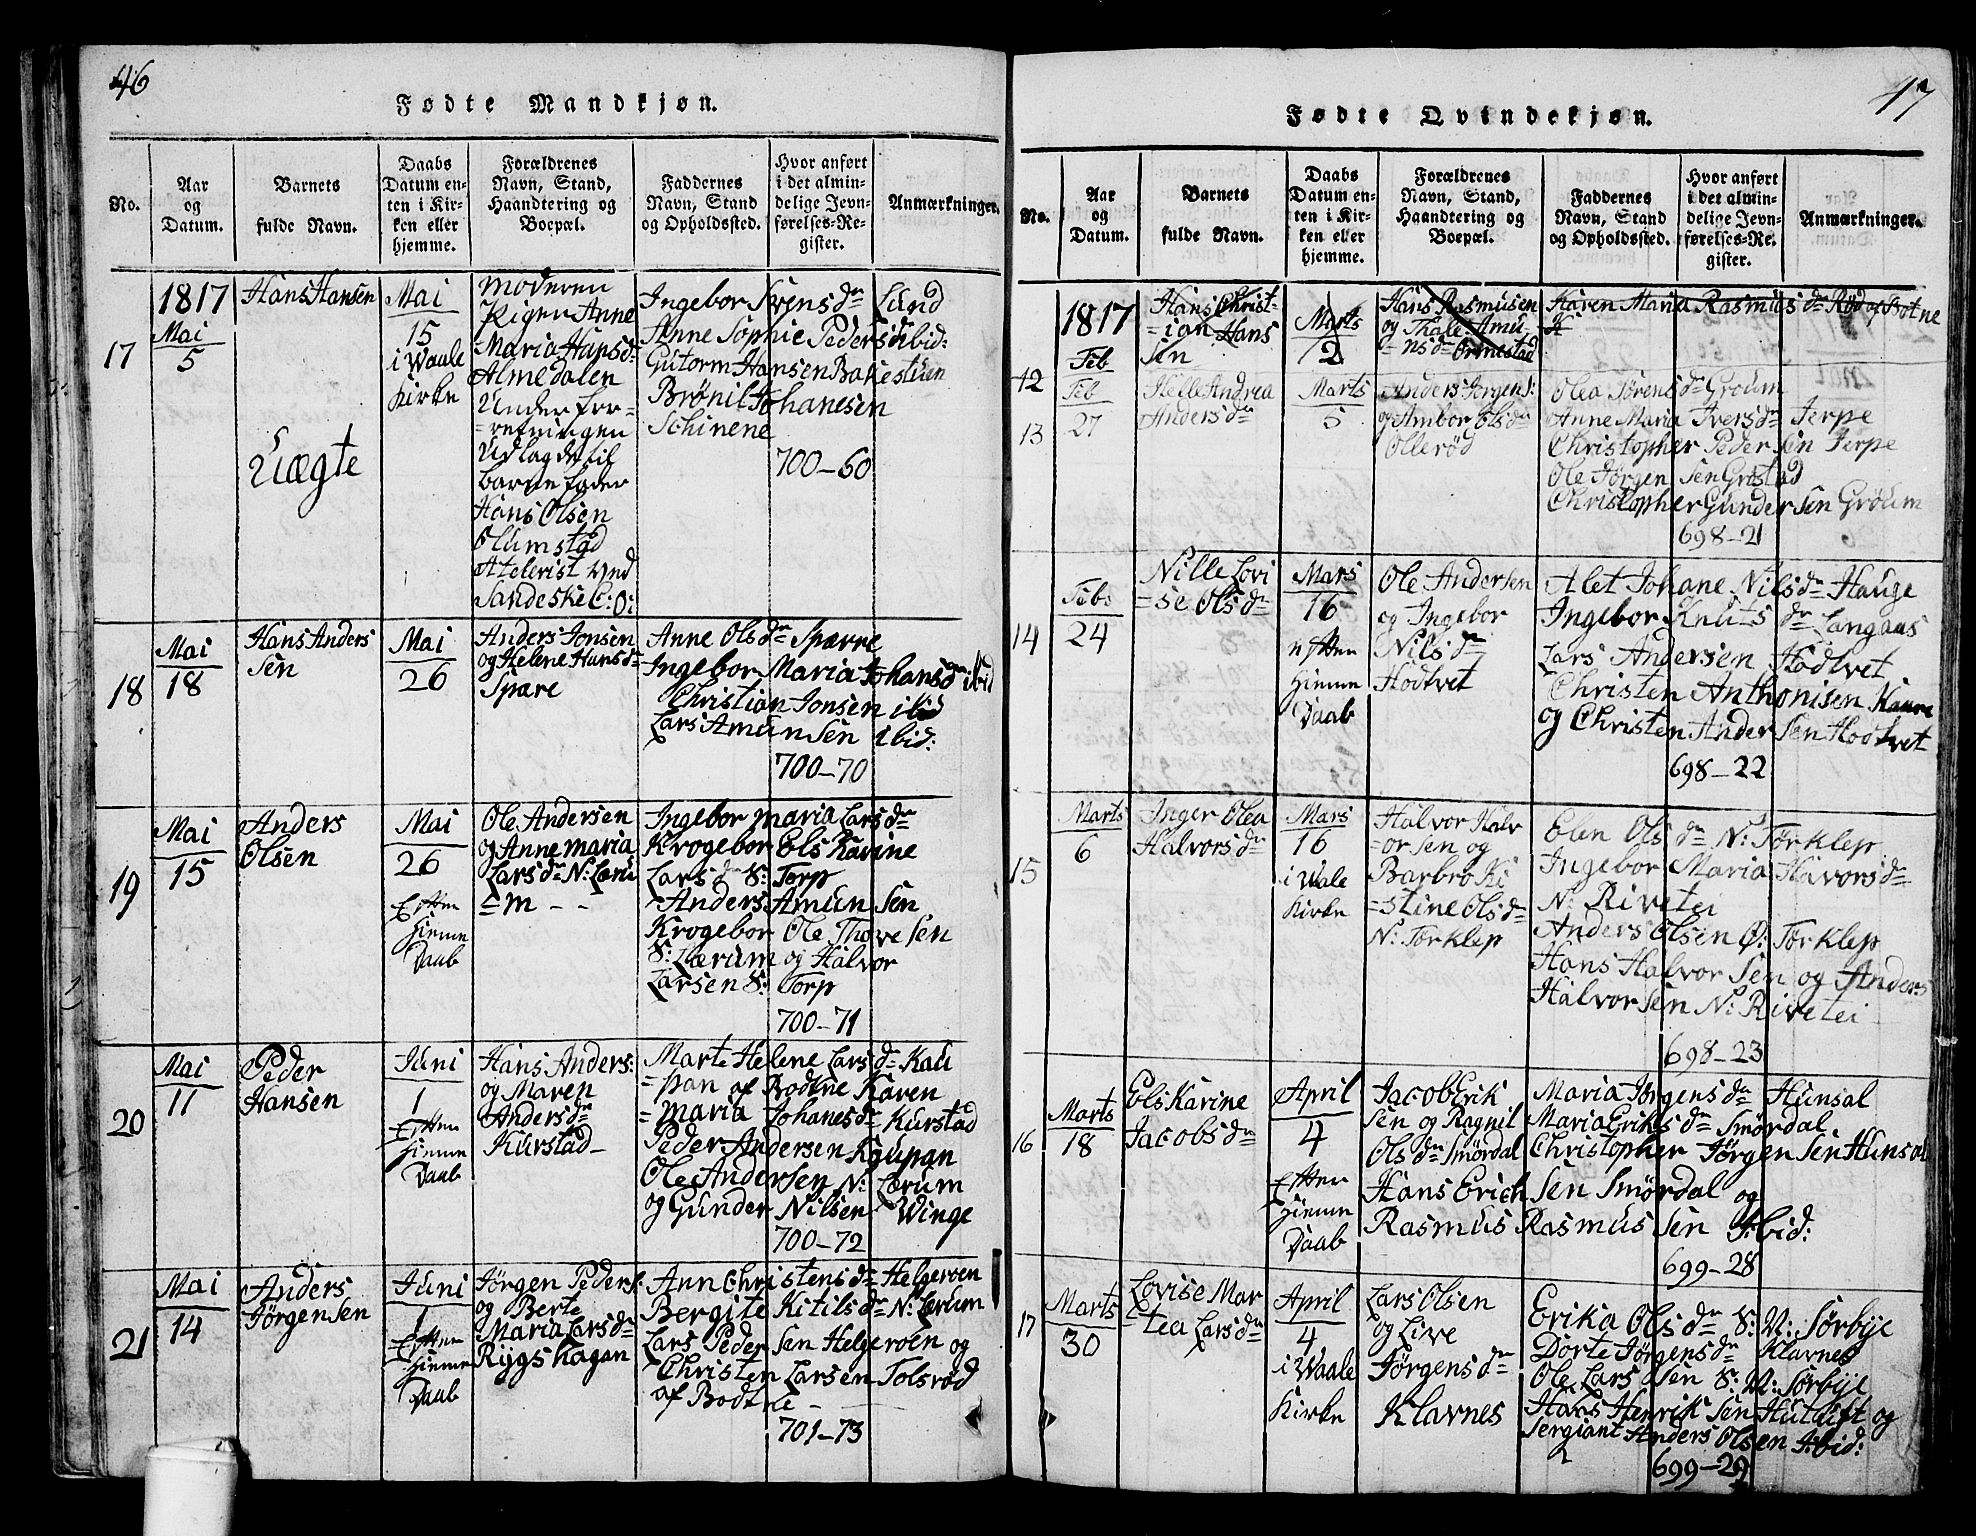 46
Fødte Mandkjøn.
No.
Aar
og
Datum.
Barnets
fulde Navn.
Daabs
Datum en-
ten i Kir-
ken eller
hjemme.
Forældrenes
Navn, Stand,
Haandtering og
Boepæl.
Faddernes
Navn, Stand
og Opholdssted.
Hvor anført
i det almin-
delige Jevn-
førelses-Re-
gister.
Anmærkninger.
17
1817
Mai
5
Hans Hansen
Uægte
Mai
15
i Waale
Kirke
Moderen
Pigen Anne
Maria Hansd:
Almedalen
Under for-
=retningen
Udlagde til
barne fader
Hans Olsen
Olumstad
Atelerist
Ingebor Svensdr Lund
Anne Sophie Peders ibid:
Gutorm Hansen Bakestuen
Brønil Johanesen
Schinene
700-60
18
Mai
18
Hans Anders
sen
Mai
26
Anders Jonsen
og Helene Hansdr
Spære
Anne Olsdr Spærre
Ingebor Maria Johansdr ibid
Christian Jonsen ibid
Lars Amunsen ibid:
700-70
19
Mai
15
Anders
Olsen
Mai
26
Efter
Hiemme
Daab
Ole Andersen
og Anne maria
Larsdr N: Læru
=m - -
Ingebor maria Larsdr
Krogebor Els Karine
Larsdr S: Torp
Anders Amunsen
Krogebor Ole Thoresen
S: Lærum og Halvor
Larsen S: Torp
700-71
20
Mai
11
Peder
Hansen
Juni
1
Efter
Hiemme
Daab
Hans Anders:
og Maren
Andersdr
Kurstad-
Marte Helene Larsdr Kau
=pan af Bodtne Karen
=maria Johanesdr Kurstad
Peder Andersen Kaupan
Ole Andersen N: Lærum
og Gunder Nilsen Winge
700-72
21
Mai
14
Anders
Jörgensen
Juni
1
Efter
Hiemme
Daab
Jörgen Peders:
og Berte
Maria Larsdr
Rygshagan
Ann Christensdr Helgeroen
Bergite Kitilsdr N: Lærum
Lars Pedersen Helgeroen og
Christen Larsen Tolsrød
af Bodtne -
701-73
17
Fødte Qvindekjøn.
No.
Aar
og
Datum.
Barnets
fulde Navn.
Daabs
Datum en-
ten i Kir-
ken eller
hjemme.
Forældrenes
Navn, Stand,
Haandtering og
Boepæl.
Faddernes
Navn, Stand
og Opholdssted.
Hvor anført
i det almin-
delige Jevn-
førelses-Re-
gister.
Anmærkninger.
12
1817
Feb
Hans Christ-
=ian Hans
sen
Marts
2
Hans Rasmusen
og Thale Amu-
=nsdr Ormestad
Karen Maria Rasmusdr Rød af Botne
13
Feb
27
Helle Andrea
Andersdr
Marts
5
Anders Jörgens:
og Ambor Olsdr
Ollerød
Olea Sørensdr Groum
Anne Maria Iversdr Jerpe
Christopher Pedersen Jerpe
Ole Jörgensen Gristad
Christopher Gundersen Grøum
698-21
14
Feb:
24
Nille Lovi
=se Olsdr
Mars
16
efter
Hiemme
Daab
Ole Andersen
og Ingebor
Nilsdr
Hodtvet
Alet Johane Nilsdr Hauge
Ingebor Knutsdr Langaas
Lars Andersen Hodtvet
Christen Anthonisen
og Christen Andersen Hodtvet
698-22
15
Marts
6
Inger Olea
Halvorsdr
Mars
16
i Wale
Kirke
Halvor Halv
=orsen og
Barbro Ki
=stine Olsdr
N: Torklep
Elen Olsdr N: Torklep
Ingebor Maria Havorsdr
N: Rivetei
Anders Olsen Ø: Torklep
Hans Halvorsen og Anders
Halvorsen N: Rivetei
698-23
16
Marts
18
Els Karine
Jacobsdr
April
4
Efter
Hiemme
Daab
Jacob Erik
sen og Ragnil
Olsdr Smördal
Maria Jørgensdr Hunsal
Maria Eriksdr Smördal
Christopher Jørgensen Hunsal
Hans Erichsen Smørdal og
Rasmus Rasmussen Ibid:
699-28
17
Marts
30
Lovise Mar
=tea Larsdr
April
4
i Waale
Kirke
Lars Olsen
og Live
Jörgensdr
Klavnes
Erika Olsdr S: V: Sørbye
Dorte Jørgensdr Klavnes
Ole Larssen S: V: Sørbye
Hans Henriksen Hutuft og
Sergiant Anders Olsen Ibid:
699-29